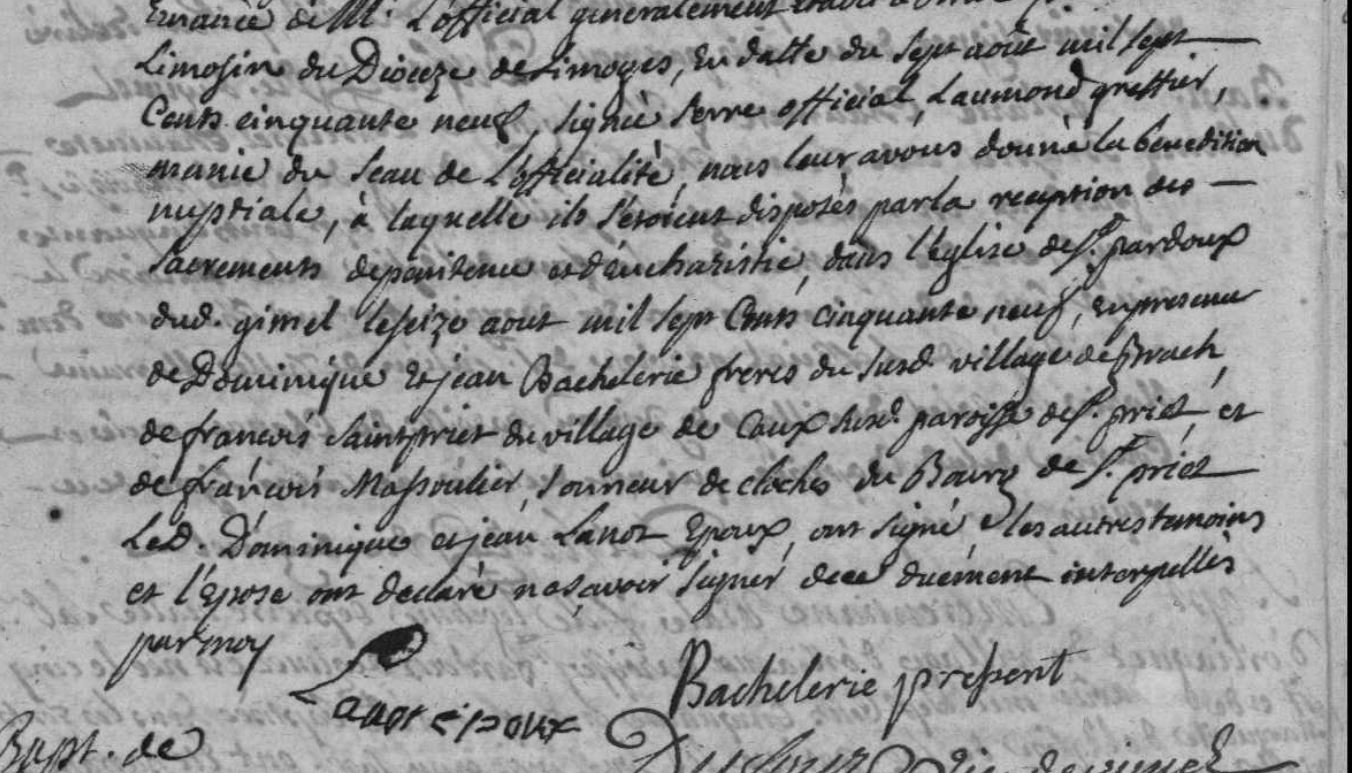 Emanée de Mr. L'official generalement
Limosin du Dioceze de Limoges, En datte du sept août mil sept
Cents cinquante neuf, signée serre official, Laumond greffier,
munie du seau de L'officialité, nous leur avons donné la benedition
nuptiale, à laquelle ils s'étoient disposés par la reception des
sacrements de penitence et d'eucharistie, dans l'Eglise de St. pardoux
dud. gimel le seize aout mil sept Cents cinquante neuf, en presence
de Dominique Et jean Bachelerie freres du susd. village de Brach,
de francois saintpriet du village de Caux susd. paroisse de St. priet, et
de francois Massoulier, sonneur de cloches du Bourg de St. priet
Led. Dominique et jean Lanot Epoux, ont signé, les autres temoins
et l'Epose ont declaré ne sçavoir signer de ce duement interpellés
par moy
Lanot époux Bachelerie present
Bapt. de vic. de gimel